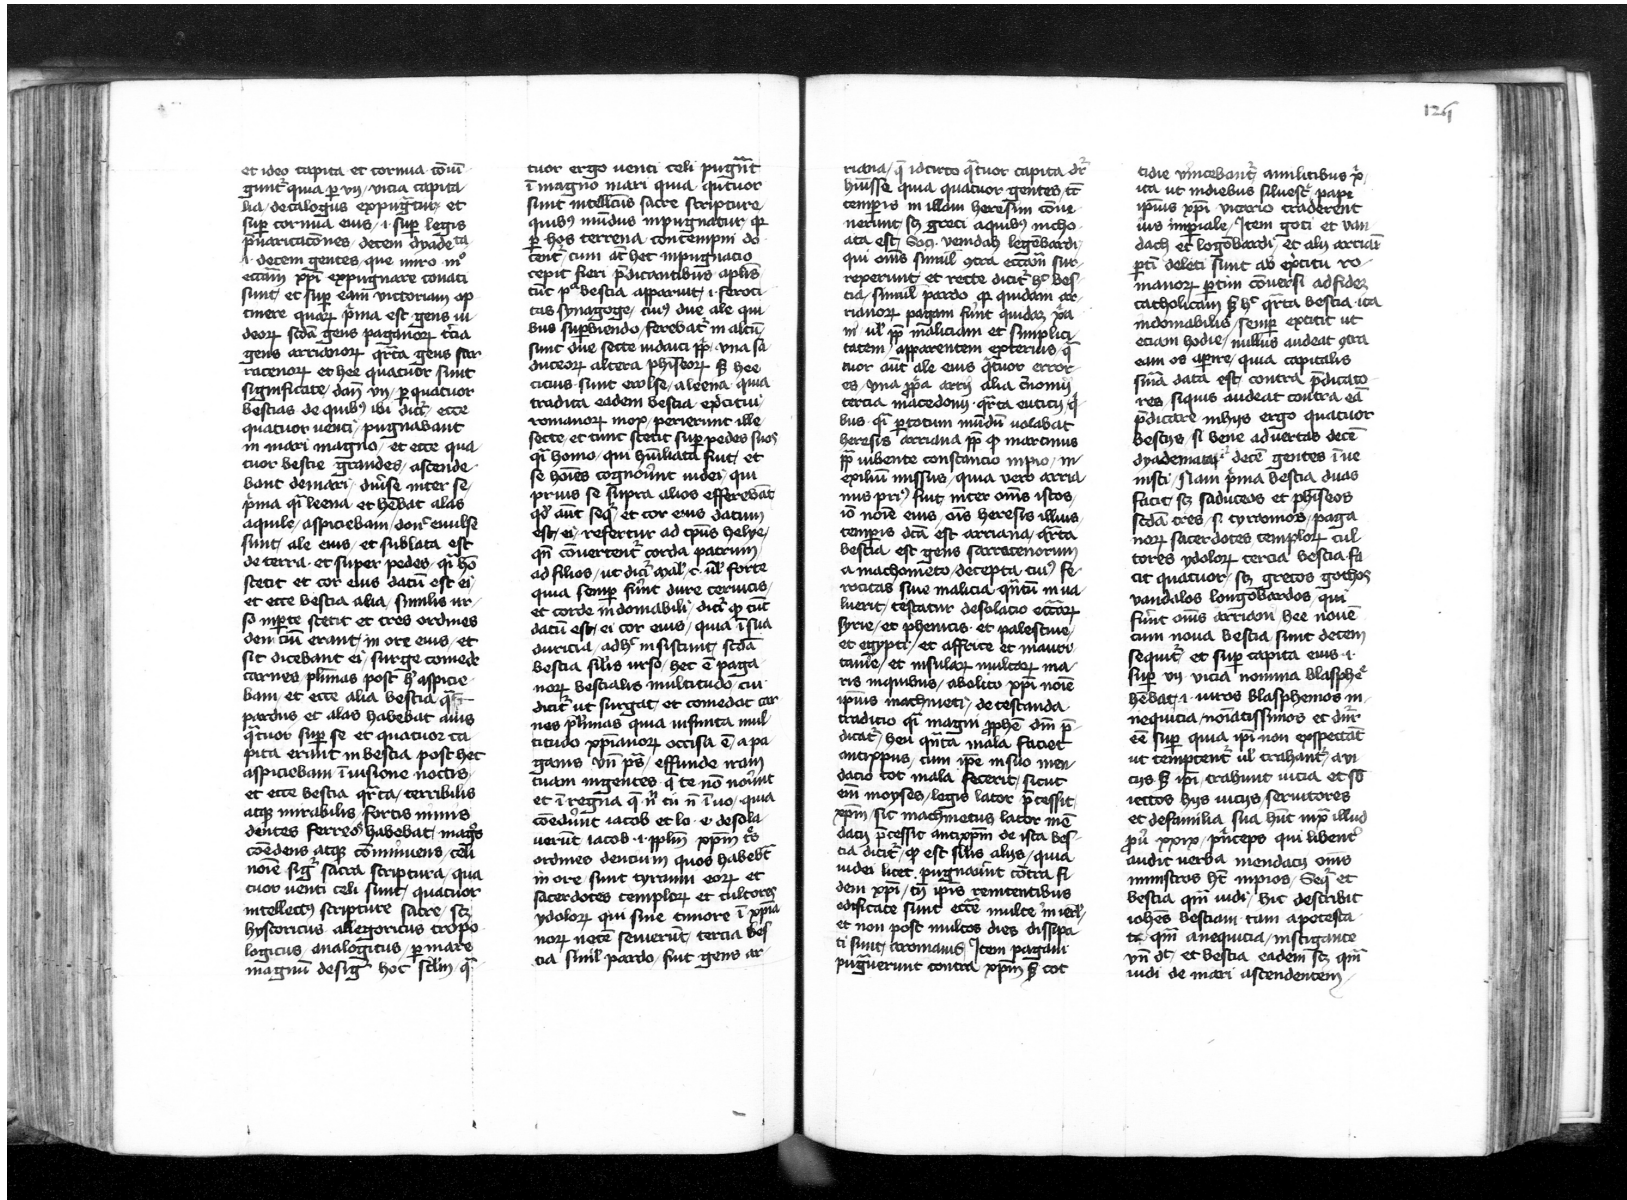 et ideo capita et cornua 9̄iū
gunt᷑ quia ꝑ vij vicia capita
lia decalogus expugnat᷑ et
suꝑ cornua eius .i. suꝑ legis
p̄uaricac̄ones decem dyade ta
.i. decem gentes que miro mº
ecc̄iam xp̄i expugnare conati
sunt et suꝑ eam victoriam op
tinere quaꝝ p̄ma est gens iu
deoꝝ sc̄da gens paganoꝝ t̄cia
gens arrianoꝝ q̄rta gens sar
racenoꝝ et hee quatuor sunt
significate dan̄ vij ꝑ quatuor
bestias de quibꝰ ibi dict᷑ ecce
quatuor venti pugnabant
in mari magno et ecce qua
tuor bestie grandes ascende
bant de mari diu̾se inter se
p̄ma q̄i leena et hēbat alas
aquile aspiciebam donc̄ euulse
sunt ale eius et sublata est
de terra et super pedes q̄i hō
stetit et cor eius datū est ei
et ecce bestia alia similis ur
so in ꝑte stetit et tres ordines
denciū erant in ore eius et
sic dicebant ei surge comede
carnes pl̄imas post h̄ aspicie
bam et ecce alia bestia q̄i
pardus et alas habebat auis
q̄tuor suꝑ se et quatuor ca
pita erant in bestia post hec
aspiciebam ī uisione noctis
et ecce bestia q̄rta terribilis
atqꝫ mirabilis fortis nimis
dentes ferreos habebat magºs
cōedens atqꝫ cōminuens celi
noīe sigᷓ sacra scriptura qua
tuor venti celi sunt quatuor
intellectꝰ scripture sacre scꝫ
hystoricus allegoricus tropo
logicus analogitus ꝑ mare
magnū desigᷓ hoc sc̄lm q̄
tuor ergo venti celi pugnāt
ī magno mari quia q̄tuor
sunt intellectus sacre scripture
quibꝰ mūdus inpugnatur qꝫ
ꝑ hos terrena contempni do
cent᷑ cum at̄ hec inpugnacio
cepit fieri p̄dicantibus aplis
tūc pᵃ bestia apparuit .i. feroci
tas synagoge cuiꝰ due ale qui
bus suꝑbiendo ferebat᷑ in altū
sunt due secte iudaici ppl̄i una sa
duceoꝝ altera phi̅seoꝝ sꝫ hee
cicius sunt euulse a leena quia
tradita eadem bestia exercitui
romanoꝝ mox perierunt ille
secte et tunc stetit super pedes suos
q̄i homo qui hūiliata fuit et
se hoīes cognoūnt iudei qui
prius se supra alios efferebāt
qd̓ aūt seqᷓ et cor eius datum
est ei refertur ad tp̄us helye
qn̄ cōuertent᷑ corda patrum
ad filios ut dict᷑ mal̓ .c. ul̓ forte
quia semper fūnt dure ceruicis
et corde indomabili dict᷑ qꝫ tūc
datū est ei cor eius quia ī sua
duricia adhᷓ insistunt sc̄da
bestia sil̄is urso hec ē paga
noꝝ bestialis multitudo cui
dicit᷑ ut surgat et comedat car
nes pl̄imas quia infinita mul
titudo xp̄ianoꝝ occisa ē a pa
ganis vn̄ ps̄ effunde iram
tuam in gentes q̄ te nō noūnt
et ī regna q̄ n̄ tū n̄ ī uo quia
comedūnt iacob et lo .e. desola
uerūt iacob .i. ppl̄m xp̄m tᷓs
ordines dencium quos habebᷓ
in ore sunt tyranni eoꝝ et
sacerdotes temploꝝ et cultores
ydoloꝝ qui sine timore ī xp̄ia
noꝝ nece seuierūt tercia bes
tia simil̓ pardo fuit gens ar
126
riana q̄ idcirco q̄tuor capita dr̄
hūisse quia quatuor gentes t̄c
temporis in illam heresim cōue
nerunt scꝫ greci a quibus incho
ata est Goti vendali legobardi
qui om̄s simul 9tra ecc̄iam sur
rexerunt et recte dicit᷑ h̄ bes
tia simil̓ pardo qꝫ quidam ar
rianoꝝ pagani fūnt quidaꝫ xp̄ia
ni ul̓ pp̄ maliciam et simplici
tatem apparentem exterius q̄
tuor aūt ale eius q̄tuor error
es una pp̄a arrij alia ēnomij
tercia macedonij q̄rta euticij q̄
bus q̄i ꝑ totum mūdū uolabat
heresis arriana pp̄ qꝫ marcinus
pp̄ iubente constancio inpio in
exiliū missus quia vero arria
nus priꝰ fuit inter om̄s istos
iō noīe eius oīs heresis illius
temporis dc̄a est arriana q̄rta
bestia est gens sarracenorum
a machometo decepta cuiꝰ fe
rocitas siue malicia qn̄tū in ua
luerit testatur desolacio ecc̄iaꝝ
syrie et phenicis et palestine
et egypti et affrice et mauri
tanie et insulaꝝ multaꝝ ma
ris in quibus abolito xp̄i noīe
ipsius machmeti detestanda
tradicio q̄i magni ꝓphē dn̄i p̄
dicat᷑ heu qn̄ta mala faciet
antixp̄us cum ipse in suo men
dacio tot mala fecerit sicut
em̄ moyses legis lator p̄cessit
xp̄m sic machmetus lator mē
dacij p̄cessit antixp̄m de ista bes
tia dicit᷑ qꝫ est sil̄is alijs quia
iudei licet pugnauīnt cōtra fi
dem xp̄i tn̄ ip̄is renitentibus
edificate sunt ecc̄ie multe in iecl̓r
et non post multos dies dissipa
ti sunt a romanis Item pagani
pugnuerunt contra xp̄m sꝫ cot
tidie vincebant᷑ a militibus xp̄i
ita ut in diebus siluestᷓ papi
ip̄ius xp̄i vicario traderent
ius inp̄iale Item goti et van
dali et logobardi et alij arriani
ꝑtī deleti sunt ab ex̄citu ro
manoꝝ ꝑtim cōuersi ad fideꝫ
catholicam sꝫ h̄ q̄rta bestia ita
indomabilis semper extitit ut
eciam hodie nullus audeat 9tra
eam os aperire quia capitalis
sn̄ia data est contra p̄dicato
res si quis audeat contra eā
p̄dicare in hijs ergo quatuor
bestijs si bene aduertas decē
dyademata .i. decē gentes īue
nisti Nam p̄ma bestia duas
facit scꝫ saduceos et phi̅seos
sc̄da tres si tyrannos paga
noꝝ sacerdotes temploꝝ cul
tores ydoloꝝ tercia bestia fa
cit quatuor scꝫ grecos gothos
vandalos longobardos qui
fūnt oīns arriani hee nouē
cum noua bestia sunt decem
sequit᷑ et suꝑ capita eius .i.
suꝑ vij vicia nomina blasphēᵉ
hēbat .i. uiros blasphemos in
nequicia noīatissimos et dn̄r
ēē suꝑ quia ip̄i non expectāt
ut temptent᷑ ul̓ trahant᷑ a vi
cijs sꝫ ip̄i trahunt uicia et sb̄
iectos hijs uicijs seruitores
et de familia sua hn̄t iuxᵃ illud
ꝓū xxix p̄nceps qui libent̓
audit verba mendacij om̄s
ministros hᷓt inpios Seqᷓ et
bestia qm̄ uidi hic describit
iohēs bestiam tam a potesta
te qm̄ a nequicia instigante
vn̄ dt̄ et bestia eadem scꝫ qm̄
uidi de mari ascendentem